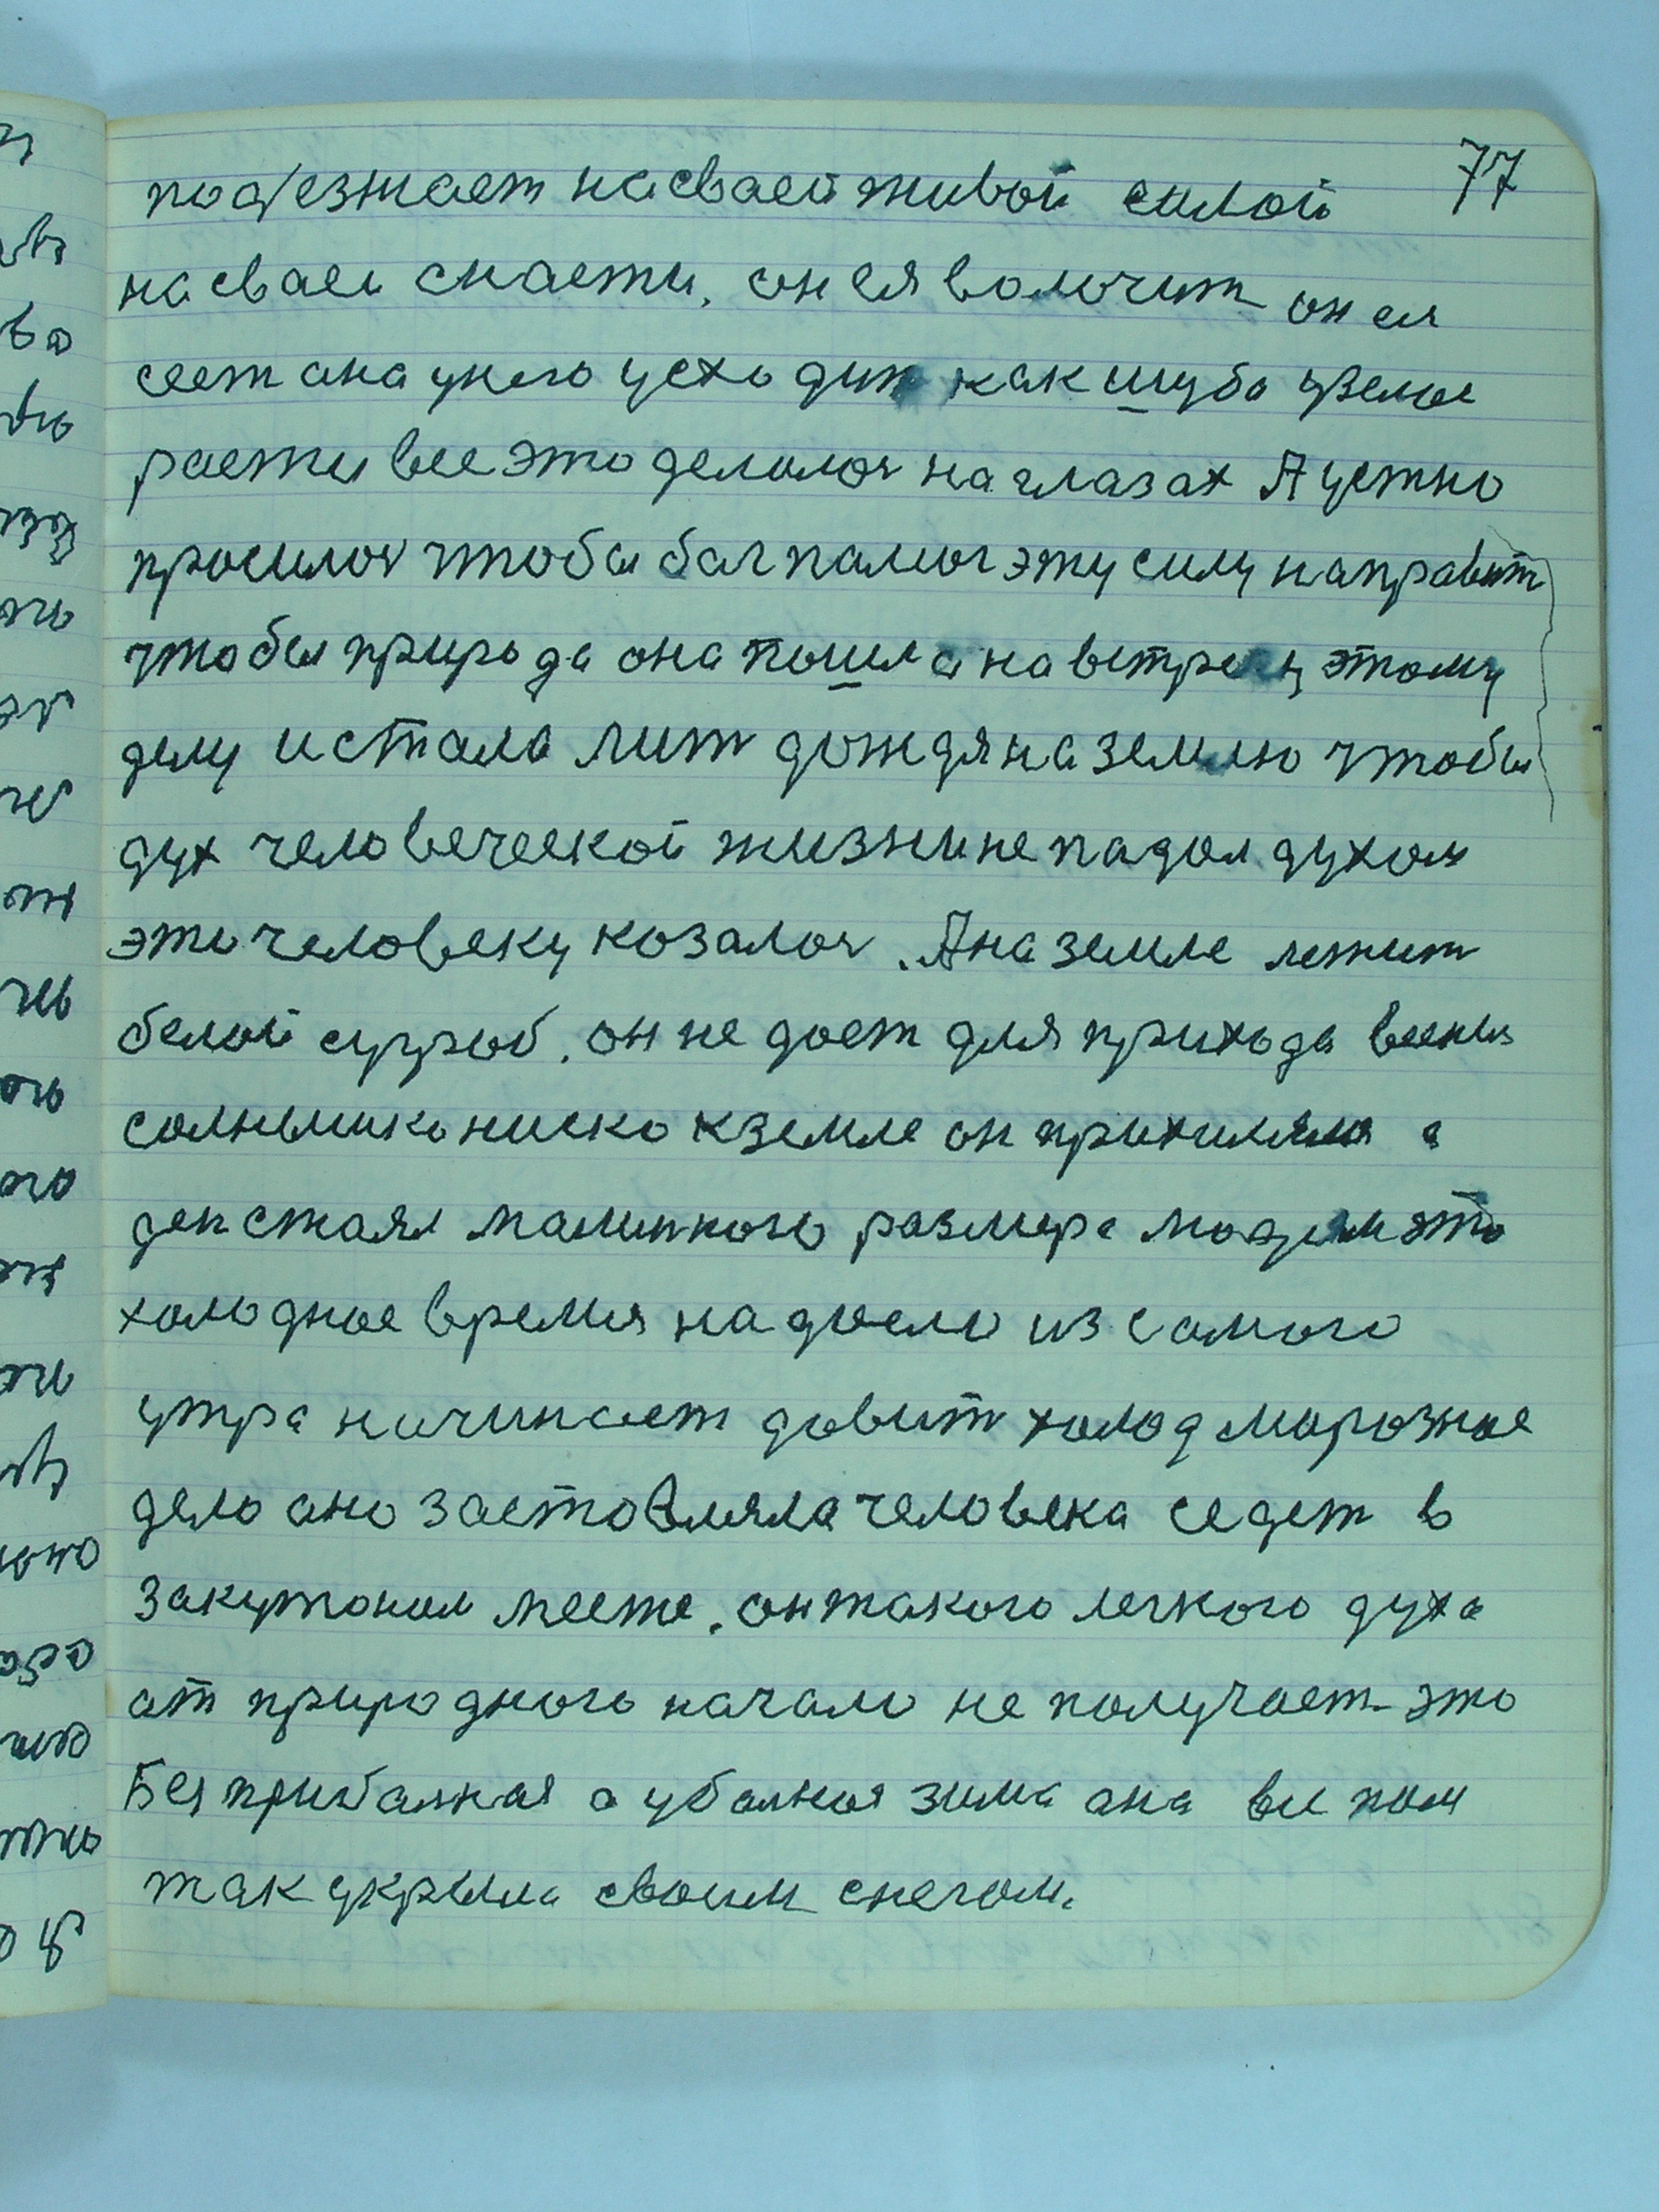 77
под/езжает насваей живой силой
насваеи снасти. он ея волочит он ея
сеет ана унего усходит как шуба зрелое
расти все это делалося наглазах А устно
просилося чтобы баг памог эту силу направит
чтобы природа она пошла навстречу этому
делу истала лит дождя наземлю чтобы
дух человеческой жизнине падал духом
эти человеку козалося. А наземле лежит
белой сугроб. он не доет для прихода весны
солнышико ниско кземле он прихилялся а
ден стаял малинкого размера людям это
холодное время надоело из самого
утра начинает давит холод морозное
дело ано застовляла человека седет в
закутоном месте. он такого легкого духа
ат природного начало не получает это
Без прибалная а убалная зима ана все пол
так укрыла своим снегом.